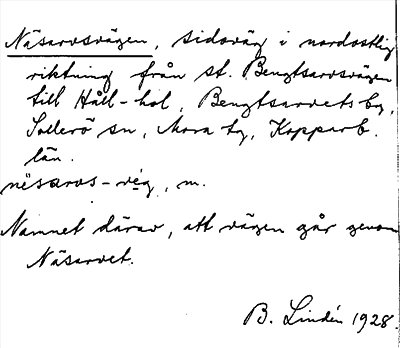 Näsarvsvägen, sidoväg i nordostlig
riktning från st. Bengtsarvsvägen
till Håll-hol, Bengtsarvets by,
Sollerö sn, Mora tg, Kopparb.
län.
nësarvs-vég, m.
Namnet därav, att vägen går genom
Näsarvet.
B. Lindén 1928.